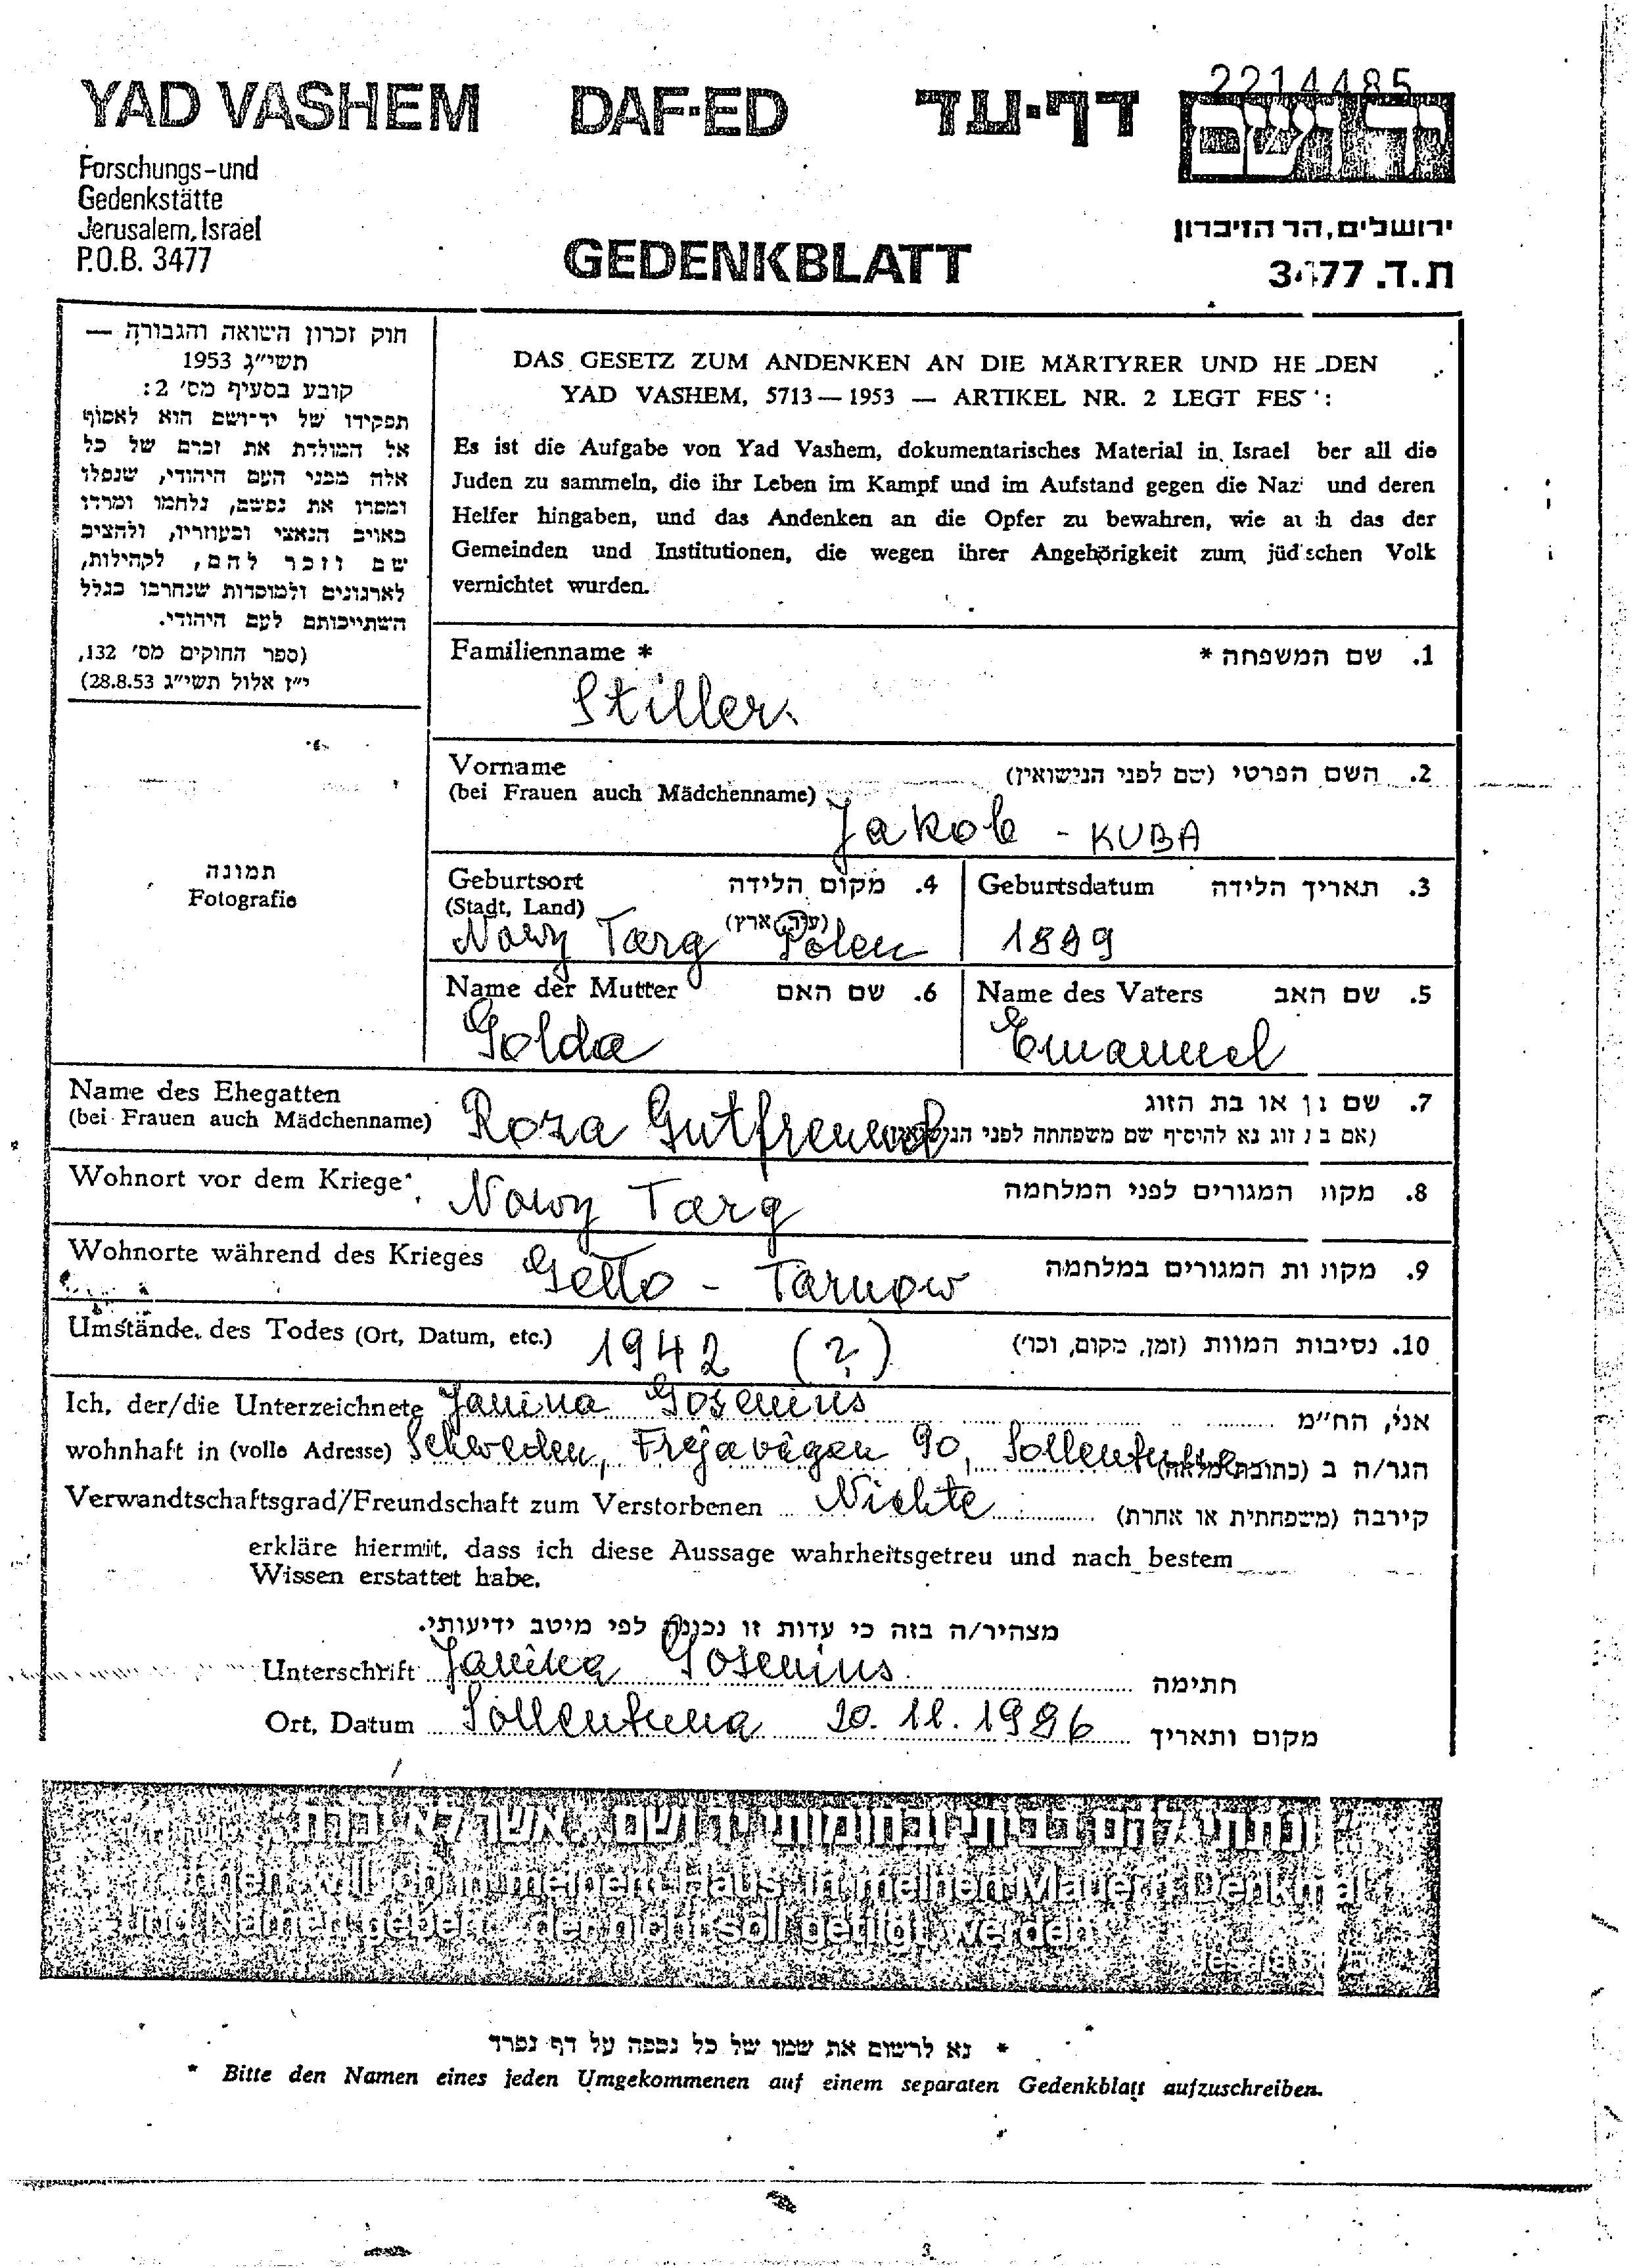 2214485
YAD VASHEM DAF-ED דף-עד ידושם
Forschungs-und
Gedenkstätte
Jerusalem, Israel
P.O.B. 3477
GEDENKBLATT
ירושלים, הר הזיכרון
ת.ד. 3477
חוק זכרון השואה והגבורה —
תשי״ג 1953
קובע בסעיף מס׳ 2:
תפקידו של יד-ושם הוא לאסוף
אל המולדת את זכרם של כל
אלה מבני העם היהודי, שנפלו
ומסרו את נפשם, נלחמו ומרדו
באויב הנאצי ובעוזריו, ולהציב
שם וזכר להם, לקהילות,
לארגונים ולמוסדות שנחרבו בגלל
השתייכותם לעם היהודי.
(ספר החוקים מס׳ 132,
י״ז אלול תשי״ג 28.8.53)
DAS GESETZ ZUM ANDENKEN AN DIE MÄRTYRER UND HE DEN
YAD VASHEM, 5713—1953 — ARTIKEL NR. 2 LEGT FES :
Es ist die Aufgabe von Yad Vashem, dokumentarisches Material in Israel ber all die
Juden zu sammeln, die ihr Leben im Kampf und im Aufstand gegen die Naz und deren
Helfer hingaben, und das Andenken an die Opfer zu bewahren, wie auch das der
Gemeinden und Institutionen, die wegen ihrer Angehörigkeit zum jüdischen Volk
vernichtet wurden.
Familienname * 1. שם המשפחה *
Stiller
Vorname 2. השם הפרטי (שם לפני הנישואין)
(bei Frauen auch Mädchenname)
Jakob - KUBA
Geburtsort 4. מקום הלידה
(Stadt, Land) (עיר, ארץ)
Nowy Targ Polen
Geburtsdatum 3. תאריך הלידה
1899
Name der Mutter 6. שם האם
Golda
Name des Vaters 5. שם האב
Emanuel
תמונה
Fotografie
Name des Ehegatten 7. שם בן או בת הזוג
(bei Frauen auch Mädchenname) Roza Gutfreund (אם בת זוג נא להוסיף שם משפחתה לפני הנישואין)
Wohnort vor dem Kriege Nowy Targ 8. מקום המגורים לפני המלחמה
Wohnorte während des Krieges Getto - Tarnow 9. מקומות המגורים במלחמה
Umstände des Todes (Ort, Datum, etc.) 1942 (?) 10. נסיבות המוות (זמן, מקום, וכו׳)
Ich, der/die Unterzeichnete Janina Gosenius אני, הח״מ
wohnhaft in (volle Adresse) Schweden, Frejavägen 90, Sollentuna הגר/ה ב (כתובת מלאה)
Verwandtschaftsgrad/Freundschaft zum Verstorbenen Nichte קירבה (משפחתית או אחרת)
erkläre hiermit, dass ich diese Aussage wahrheitsgetreu und nach bestem
Wissen erstattet habe.
מצהיר/ה בזה כי עדות זו נכונה לפי מיטב ידיעותי.
Unterschrift Janina Gosenius חתימה
Ort, Datum Sollentuna 20. 11. 1996 מקום ותאריך
ונתתי להם בביתי ובחומותי יד ושם... אשר לא יכרת
ihnen will ich in meinem Haus, in meinen Mauern Denkmal
und Namen geben, der nicht soll getilgt werden
* נא לרשום את שמו של כל נספה על דף נפרד
* Bitte den Namen eines jeden Umgekommenen auf einem separaten Gedenkblatt aufzuschreiben.